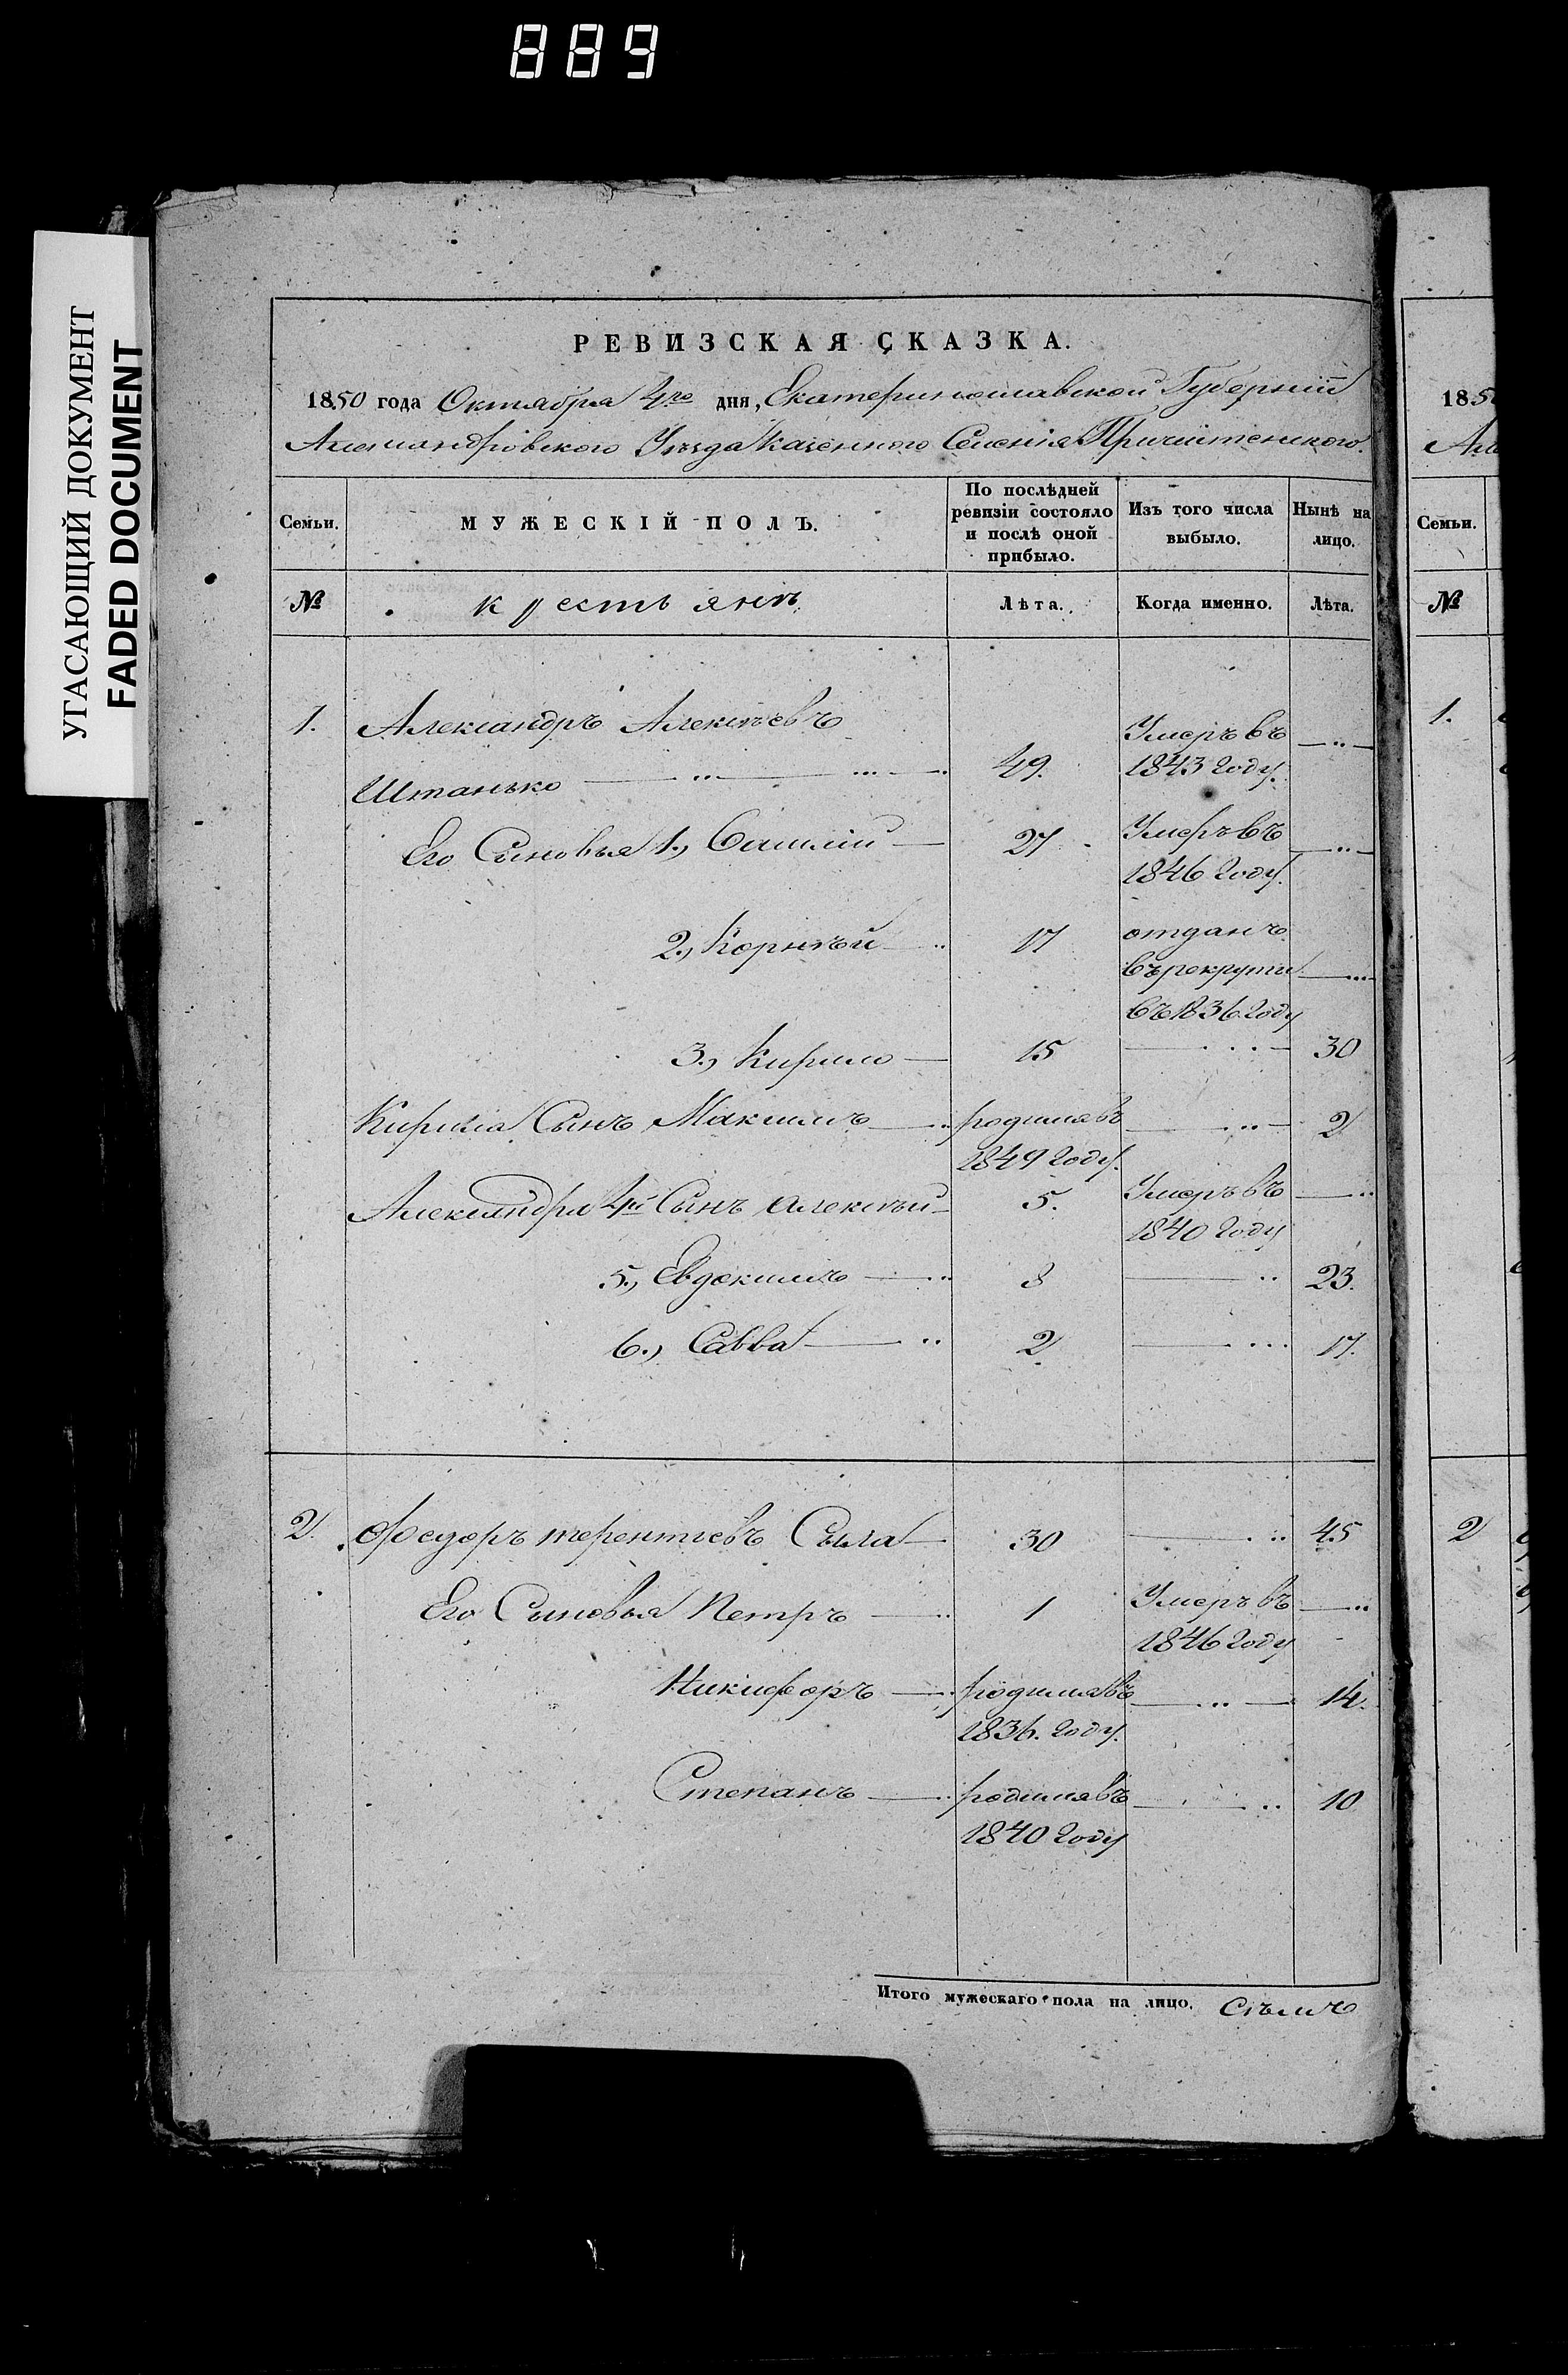 889
УГАСАЮЩИЙ ДОКУМЕНТ
FADED DOCUMENT
РЕВИЗСКАЯ СКАЗКА.
1850 года Октября 4го дня, Екатеринославской Губерніи
Александровского Уѣзда Казенного Селенія
Семьи. МУЖЕСКІЙ ПОЛЪ. По послѣдней ревизіи состояло и послѣ оной прибыло. Изъ того числа выбыло. Нынѣ на лицо.
№ крестьянъ Лѣта. Когда именно. Лѣта.
1. Александръ Алексѣевъ Умеръ въ
Штанько 49. 1843 году.
Его Сыновья 1., Василій 27 Умеръ въ
1846 году.
2., Корнѣй 17 отданъ
въ рекруты
въ 1836 году
3., Кирило 15 30
Кирила Сынъ Максимъ родился въ 2
1849 году.
Александра 4й Сынъ Алексѣй 5. Умеръ въ
1840 году
5., Евдокимъ 8 23.
6., Савва 2 17.
2 Федоръ терентіевъ Сыла 30 45
Его Сыновья Петръ 1 Умеръ въ
1846 году
Никифоръ родился въ 14.
1836. году.
Степанъ родился въ 10
1840 году
Итого мужескаго пола на лицо. Сѣмъ
1850
Семьи.
№
1.
2